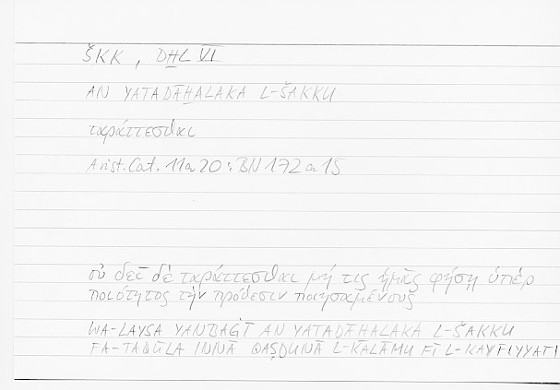 ŠKK, DḪL VI
AN YATADĀḪALAKA L-ŠAKKU
ταράττεσθαι
Arist. Cat. 11a20 : BN 172a15
οὐ δεῖ δὲ ταράττεσθαι μή τις ἡμᾶς φήσῃ ὑπὲρ
ποιότητος τὴν πρόθεσιν ποιησαμένους
WA-LAYSA YANBAĠĪ AN YATADĀḪALAKA L-ŠAKKU
FA-TAQŪLA INNĀ QAṢDUNĀ L-KALĀMU FĪ L-KAYFIYYATI